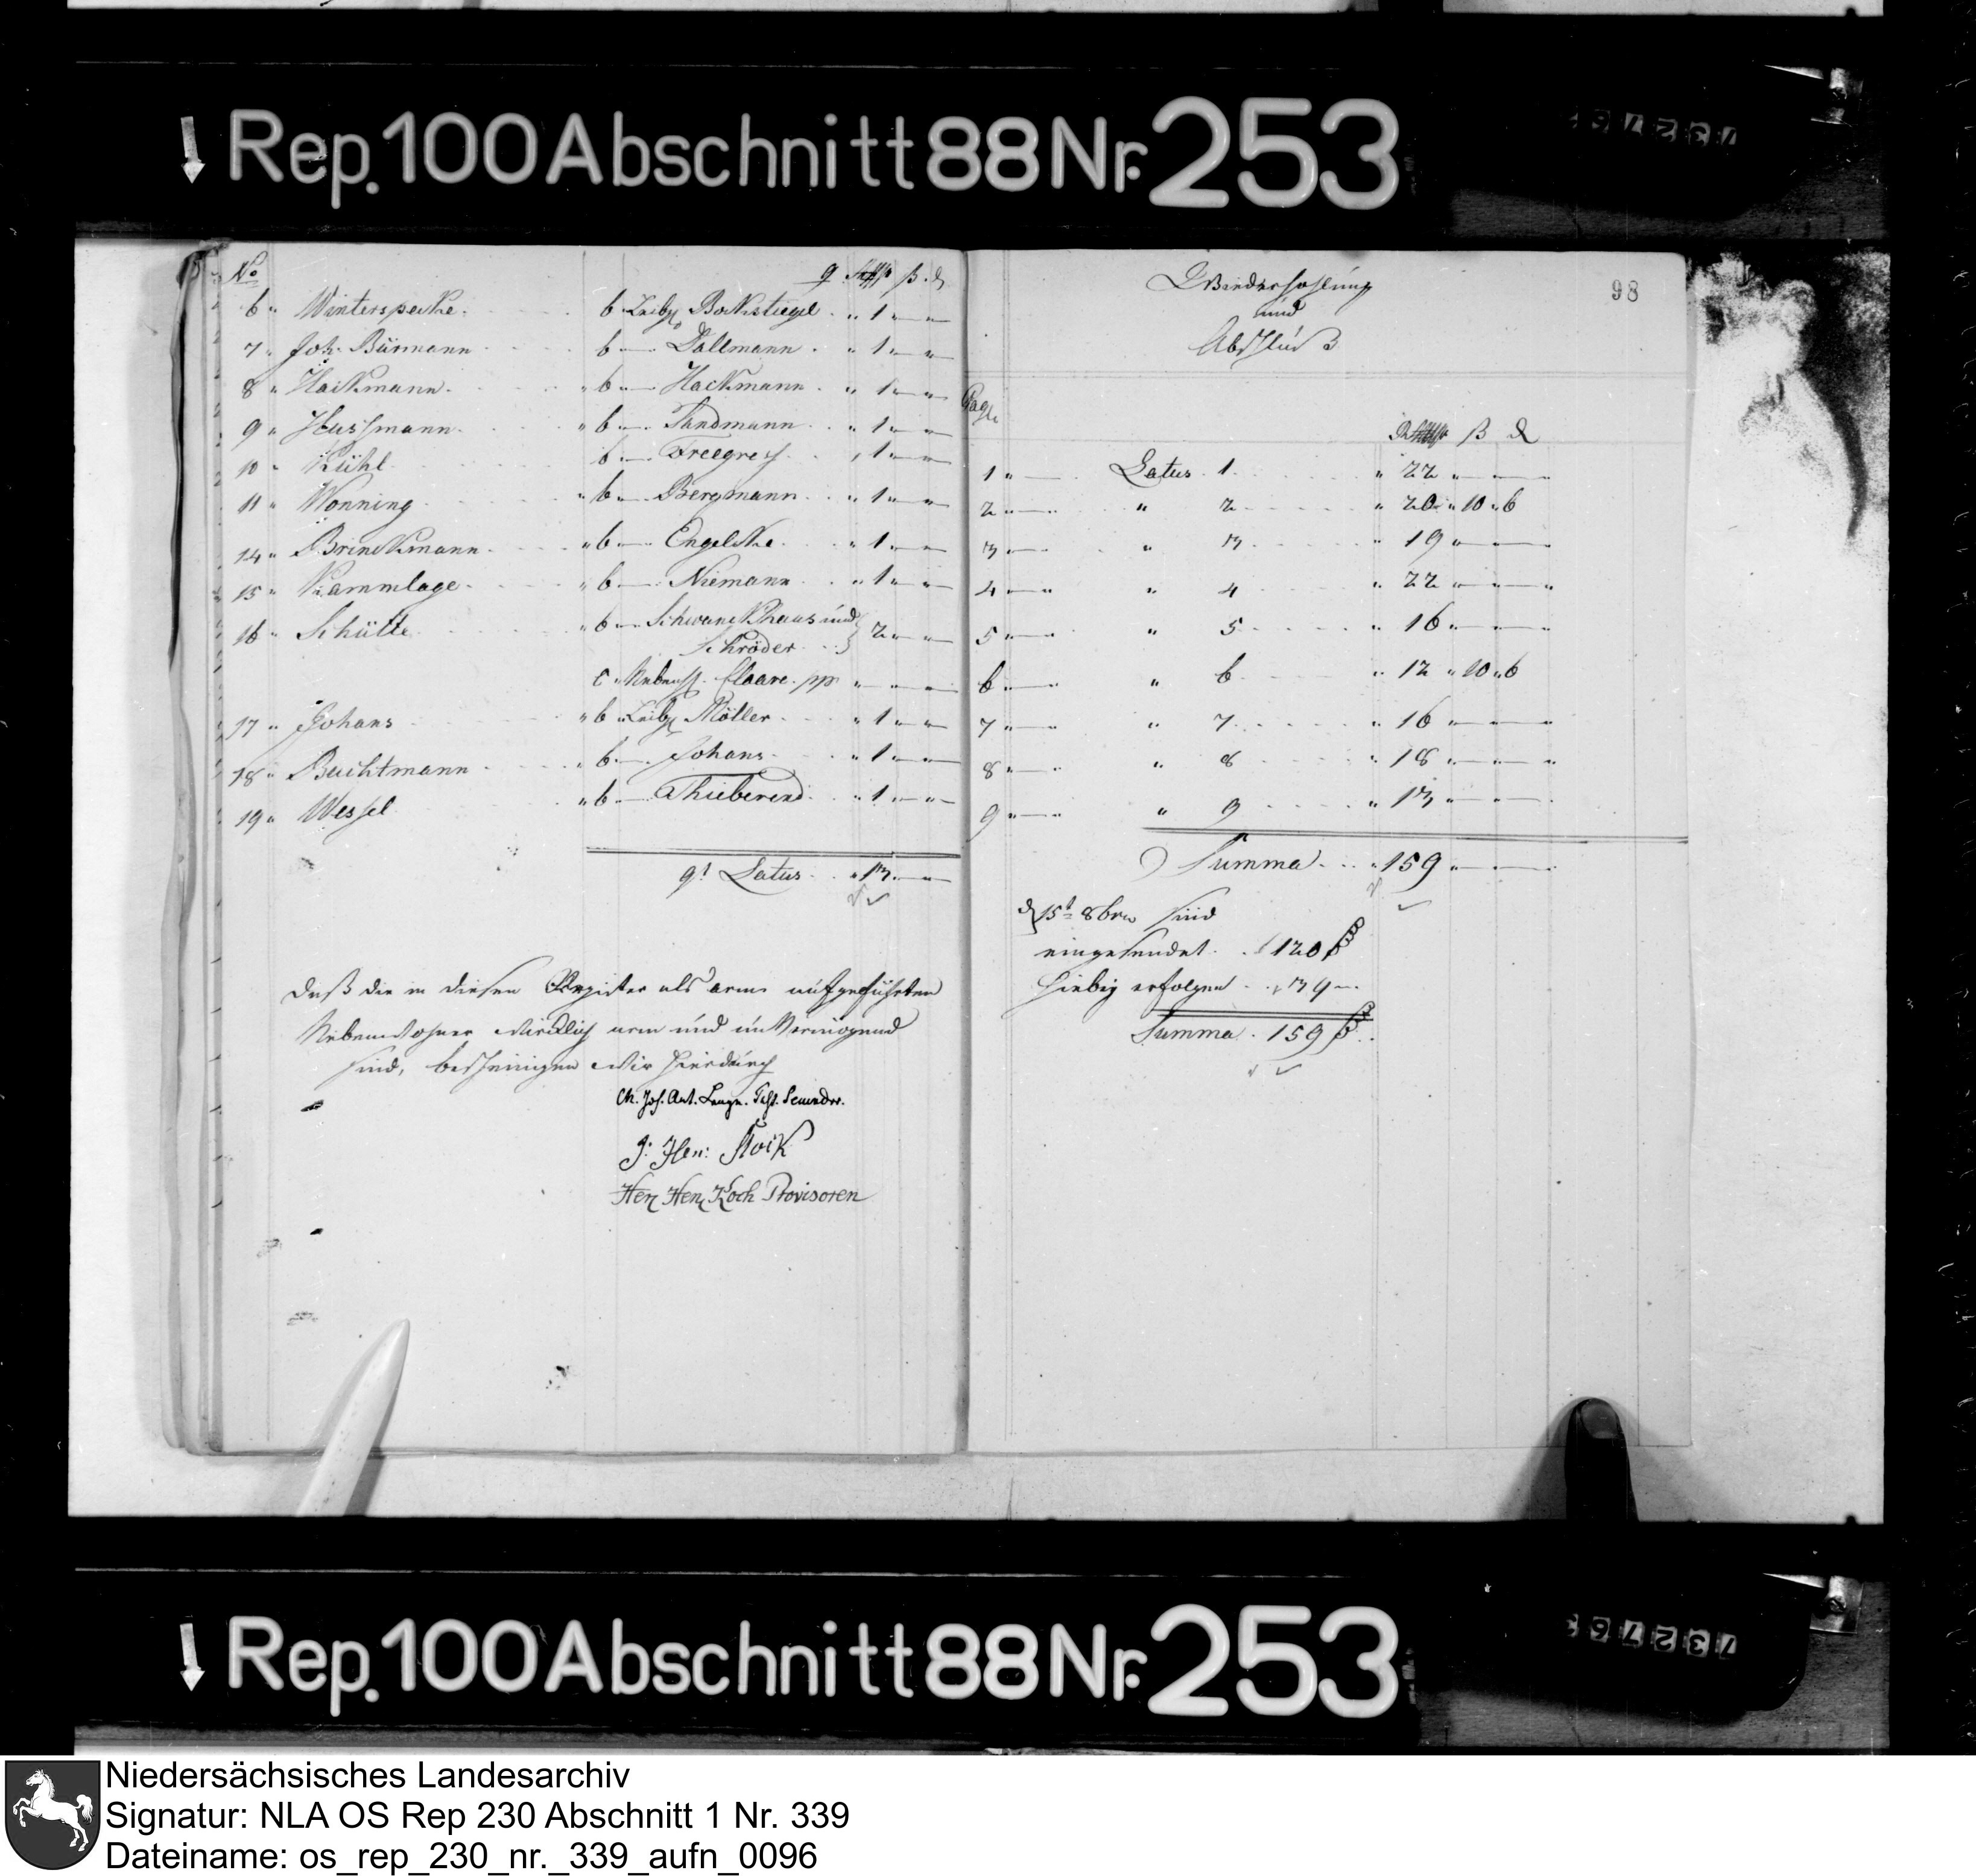 Rep. 100 Abschnitt 88 Nr. 253
No 9. ß. d
6 " Winterspecke. 6 Leibz. Bockstiegel " 1 " — "
7 " Joh. Bürmann 6 " — Dallmann " 1 " — "
8 " Hackmann " 6 " — Hackmann " 1 " — "
9 " Hussmann " 6 " — Sandmann " 1 " — "
10 " Kühl 6 " — " 1 " — "
11 " Wonning " 6 " — Bergmann " 1 " — "
14 " Brinckmann " 6 " — Engelcke " 1 " — "
15 " Kammlage " 6 " — Niemann " 1 " — "
16 " Schütte " 6 " — Schwanckhaus und
Schröder } 2 " — "
c " Nebenh. Claare pp " — " —
17 " Johans " 6 " Leibz. Möller " 1 " — "
18 " Buchtmann " 6 " — Johans " 1 " — "
19 " Wessel " 6 " — " 1 " — "
9t Latus " 13 " — "
Daß die in diesem Register als arm aufgeführten
Nebenwohner wircklich arm und unvermögend
sind, bescheinigen wir hierdurch
J: Hen: Stork
Her Hen Koch Provisoren
98
Wiederhohlung
und
Abschluß
Pagi
ß d
1 " — Latus 1 " 22 " — " —
2 " — " 2 " 20 " 10 " 6
3 " — " 3 " 19 " — " —
4 " — " " 4 " 22 " — " — "
5 " — " 5 " 16 " — " —
6 " — " 6 " 12 " 10 " 6
7 " — " 7 " 16 " — " — "
8 " — " 8 " 18 " — " — "
9 " — " 9 " 13 " — " —
Summa " 159 " — " —
d 15t 8br sind
eingesendet 120
hiebey erfolgen " 39 " —
Summa 159
Rep. 100 Abschnitt 88 Nr. 253
Niedersächsisches Landesarchiv
Signatur: NLA OS Rep 230 Abschnitt 1 Nr. 339
Dateiname: os_rep_230_nr._339_aufn_0096